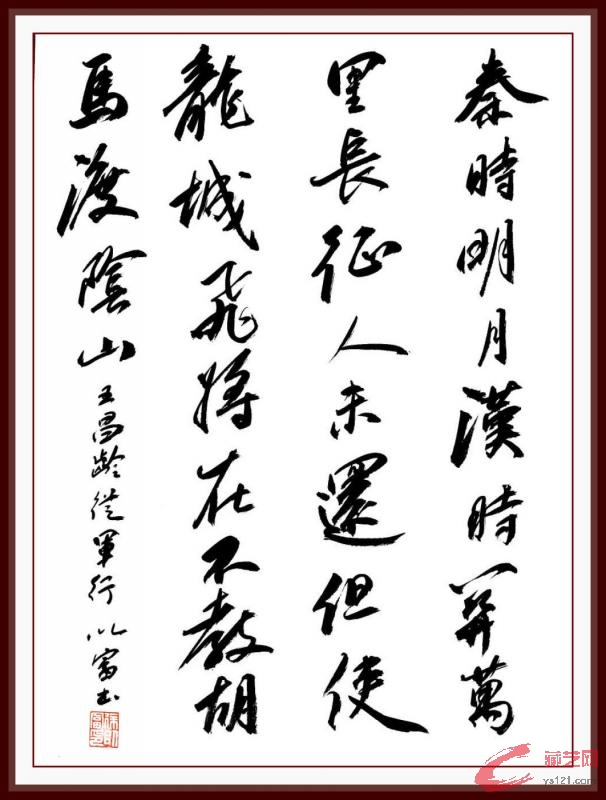 秦時明月漢時關萬
里長征人未還但使
龍城飛將在不教胡
馬渡陰山
王昌齡從軍行 以富书
藏艺网
ys121.com